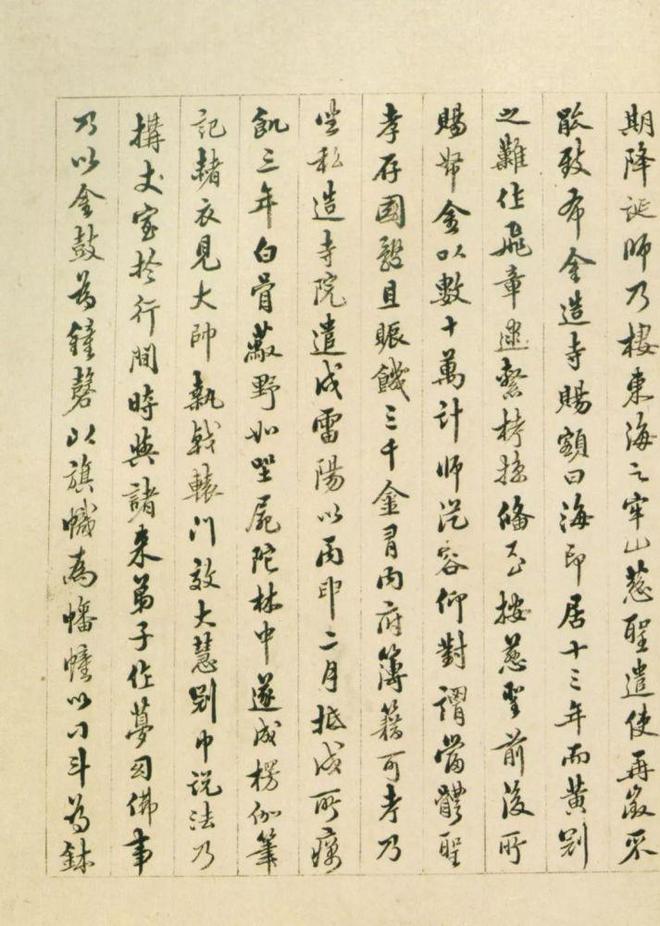 期降誕師乃棲東海之牢山慈聖遣使再徵不
能致布金造寺賜額曰海印居十三年而黃冠
之難作飛章逮繫拷掠備至按慈聖前後所
賜帑金以數十萬計師從容仰對謂當體聖
孝存國體且賑饑三千金有內府簿籍可考乃
坐私造寺院遣戍雷陽以丙申二月抵戍所癘
飢三年白骨蔽野如坐屍陀林中遂成楞伽筆
記赭衣見大帥執戟轅門效大慧冠巾說法乃
搆丈室於行間時與諸來弟子作夢幻佛事
乃以金鼓為鐘磬以旗幟為幡幢以刁斗為鉢